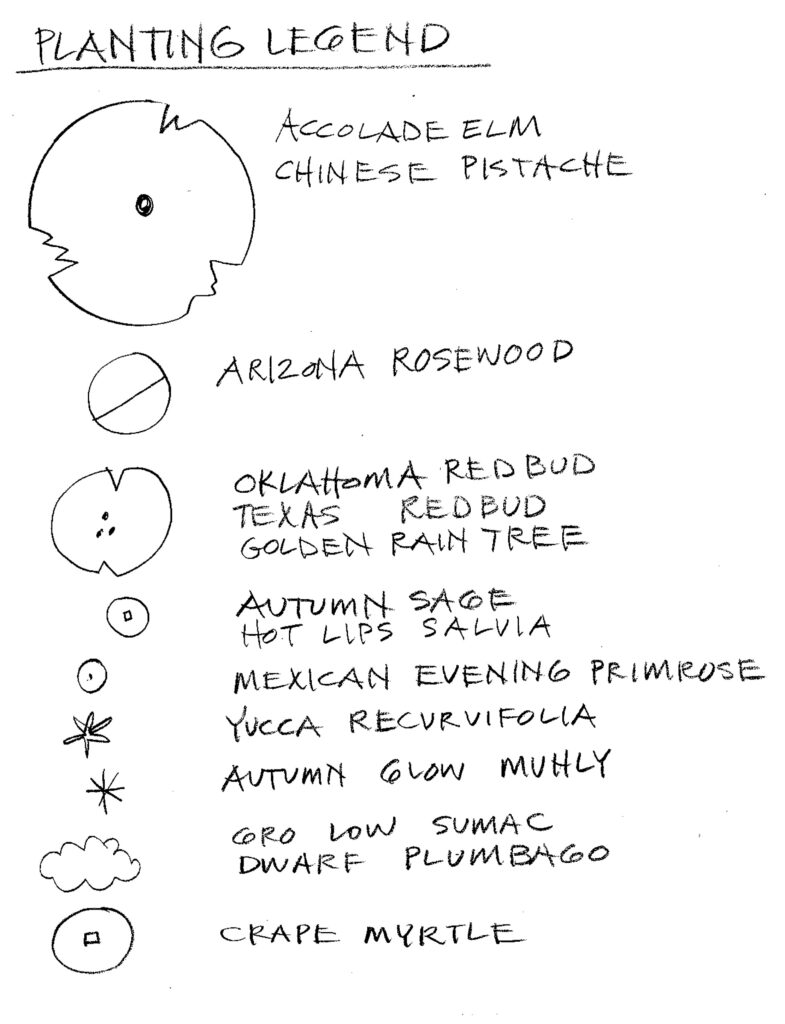 PLANTING LEGEND
ACCOLADE ELM
CHINESE PISTACHE
ARIZONA ROSEWOOD
OKLAHOMA REDBUD
TEXAS REDBUD
GOLDEN RAIN TREE
AUTUMN SAGE
HOT LIPS SALVIA
MEXICAN EVENING PRIMROSE
YUCCA RECURVIFOLIA
AUTUMN GLOW MUHLY
GRO LOW SUMAC
DWARF PLUMBAGO
CRAPE MYRTLE